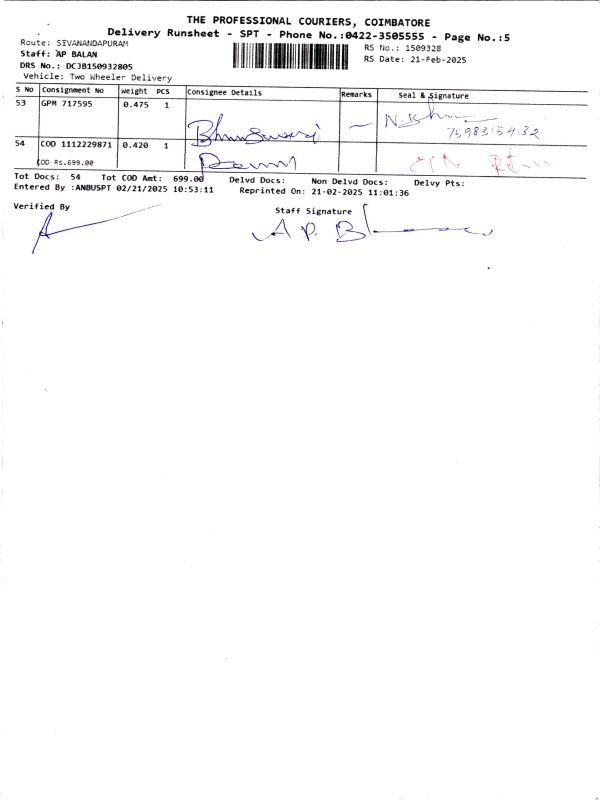 THE PROFESSIONAL COURIERS, COIMBATORE
Delivery Runsheet - SPT - Phone No.:0422-3505555 - Page No.:5
Route: SIVANANDAPURAM
Staff: AP BALAN
DRS No.: DCJB150932805
Vehicle: Two Wheeler Delivery
RS No.: 1509328
RS Date: 21-Feb-2025
S No Consignment No Weight PCS Consignee Details Remarks Seal & Signature
53 GPM 717595 0.475 1
54 COD 1112229871 0.420 1
COD RS.699.00
Tot Docs: 54 Tot COD Amt: 699.00 Delvd Docs: Non Delvd Docs: Delvy Pts:
Entered By :ANBUSPT 02/21/2025 10:53:11 Reprinted On: 21-02-2025 11:01:36
Verified By
Staff Signature